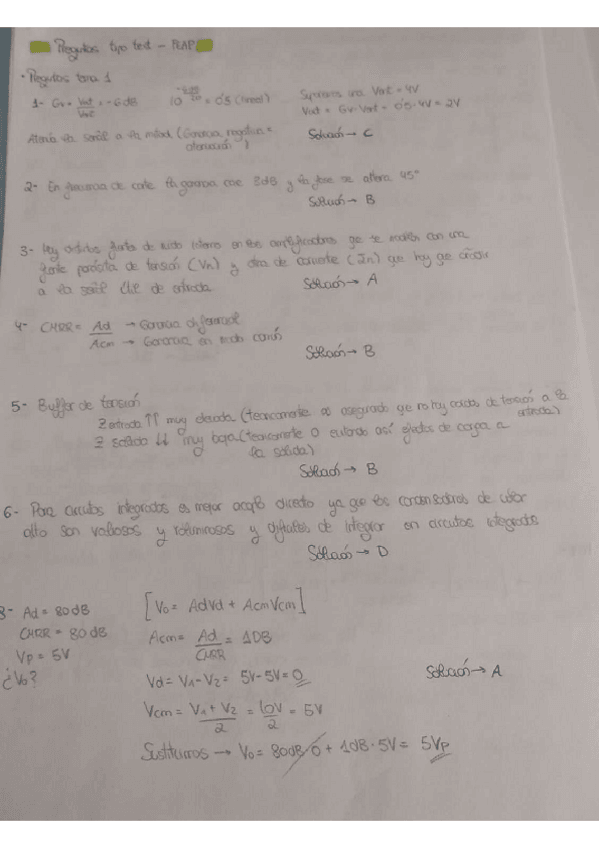 Preguntas tipo test - PEAP
• Preguntas tema 1
1- Gv = Vout/Vent = -6dB 10^(-6/20) = 0'5 (lineal) Suponemos una Vent = 4V
Vout = Gv·Vent = 0'5·4V = 2V
Atenúa la señal a la mitad (Ganancia negativa = atenuación) Solución → C
2- En frecuencia de corte la ganancia cae 3dB y la fase se altera 45°
Solución → B
3- Hay distintas fuentes de ruido interno en los amplificadores que se modelan con una
fuente parásita de tensión (Vn) y otra de corriente (In) que hay que añadir
a la señal útil de entrada Solución → A
4- CMRR = Ad/Acm → Ganancia diferencial
→ Ganancia en modo común
Solución → B
5- Buffer de tensión
Z entrada ↑↑ muy elevada (teoricamente ∞ asegurando que no hay caídas de tensión a la entrada)
Z salida ↓↓ muy baja (teoricamente 0 evitando así efectos de carga a
la salida)
Solución → B
6- Para circuitos integrados es mejor acoplo directo ya que los condensadores de valor
alto son valiosos y voluminosos y difíciles de integrar en circuitos integrados
Solución → D
8- Ad = 80dB [Vo = AdVd + AcmVcm]
CMRR = 80dB Acm = Ad/CMRR = 1DB
Vp = 5V
¿Vo? Vd = V1-V2 = 5V-5V = 0 Solución → A
Vcm = (V1+V2)/2 = 10V/2 = 5V
Sustituimos → Vo = 80dB·0 + 1dB·5V = 5Vp